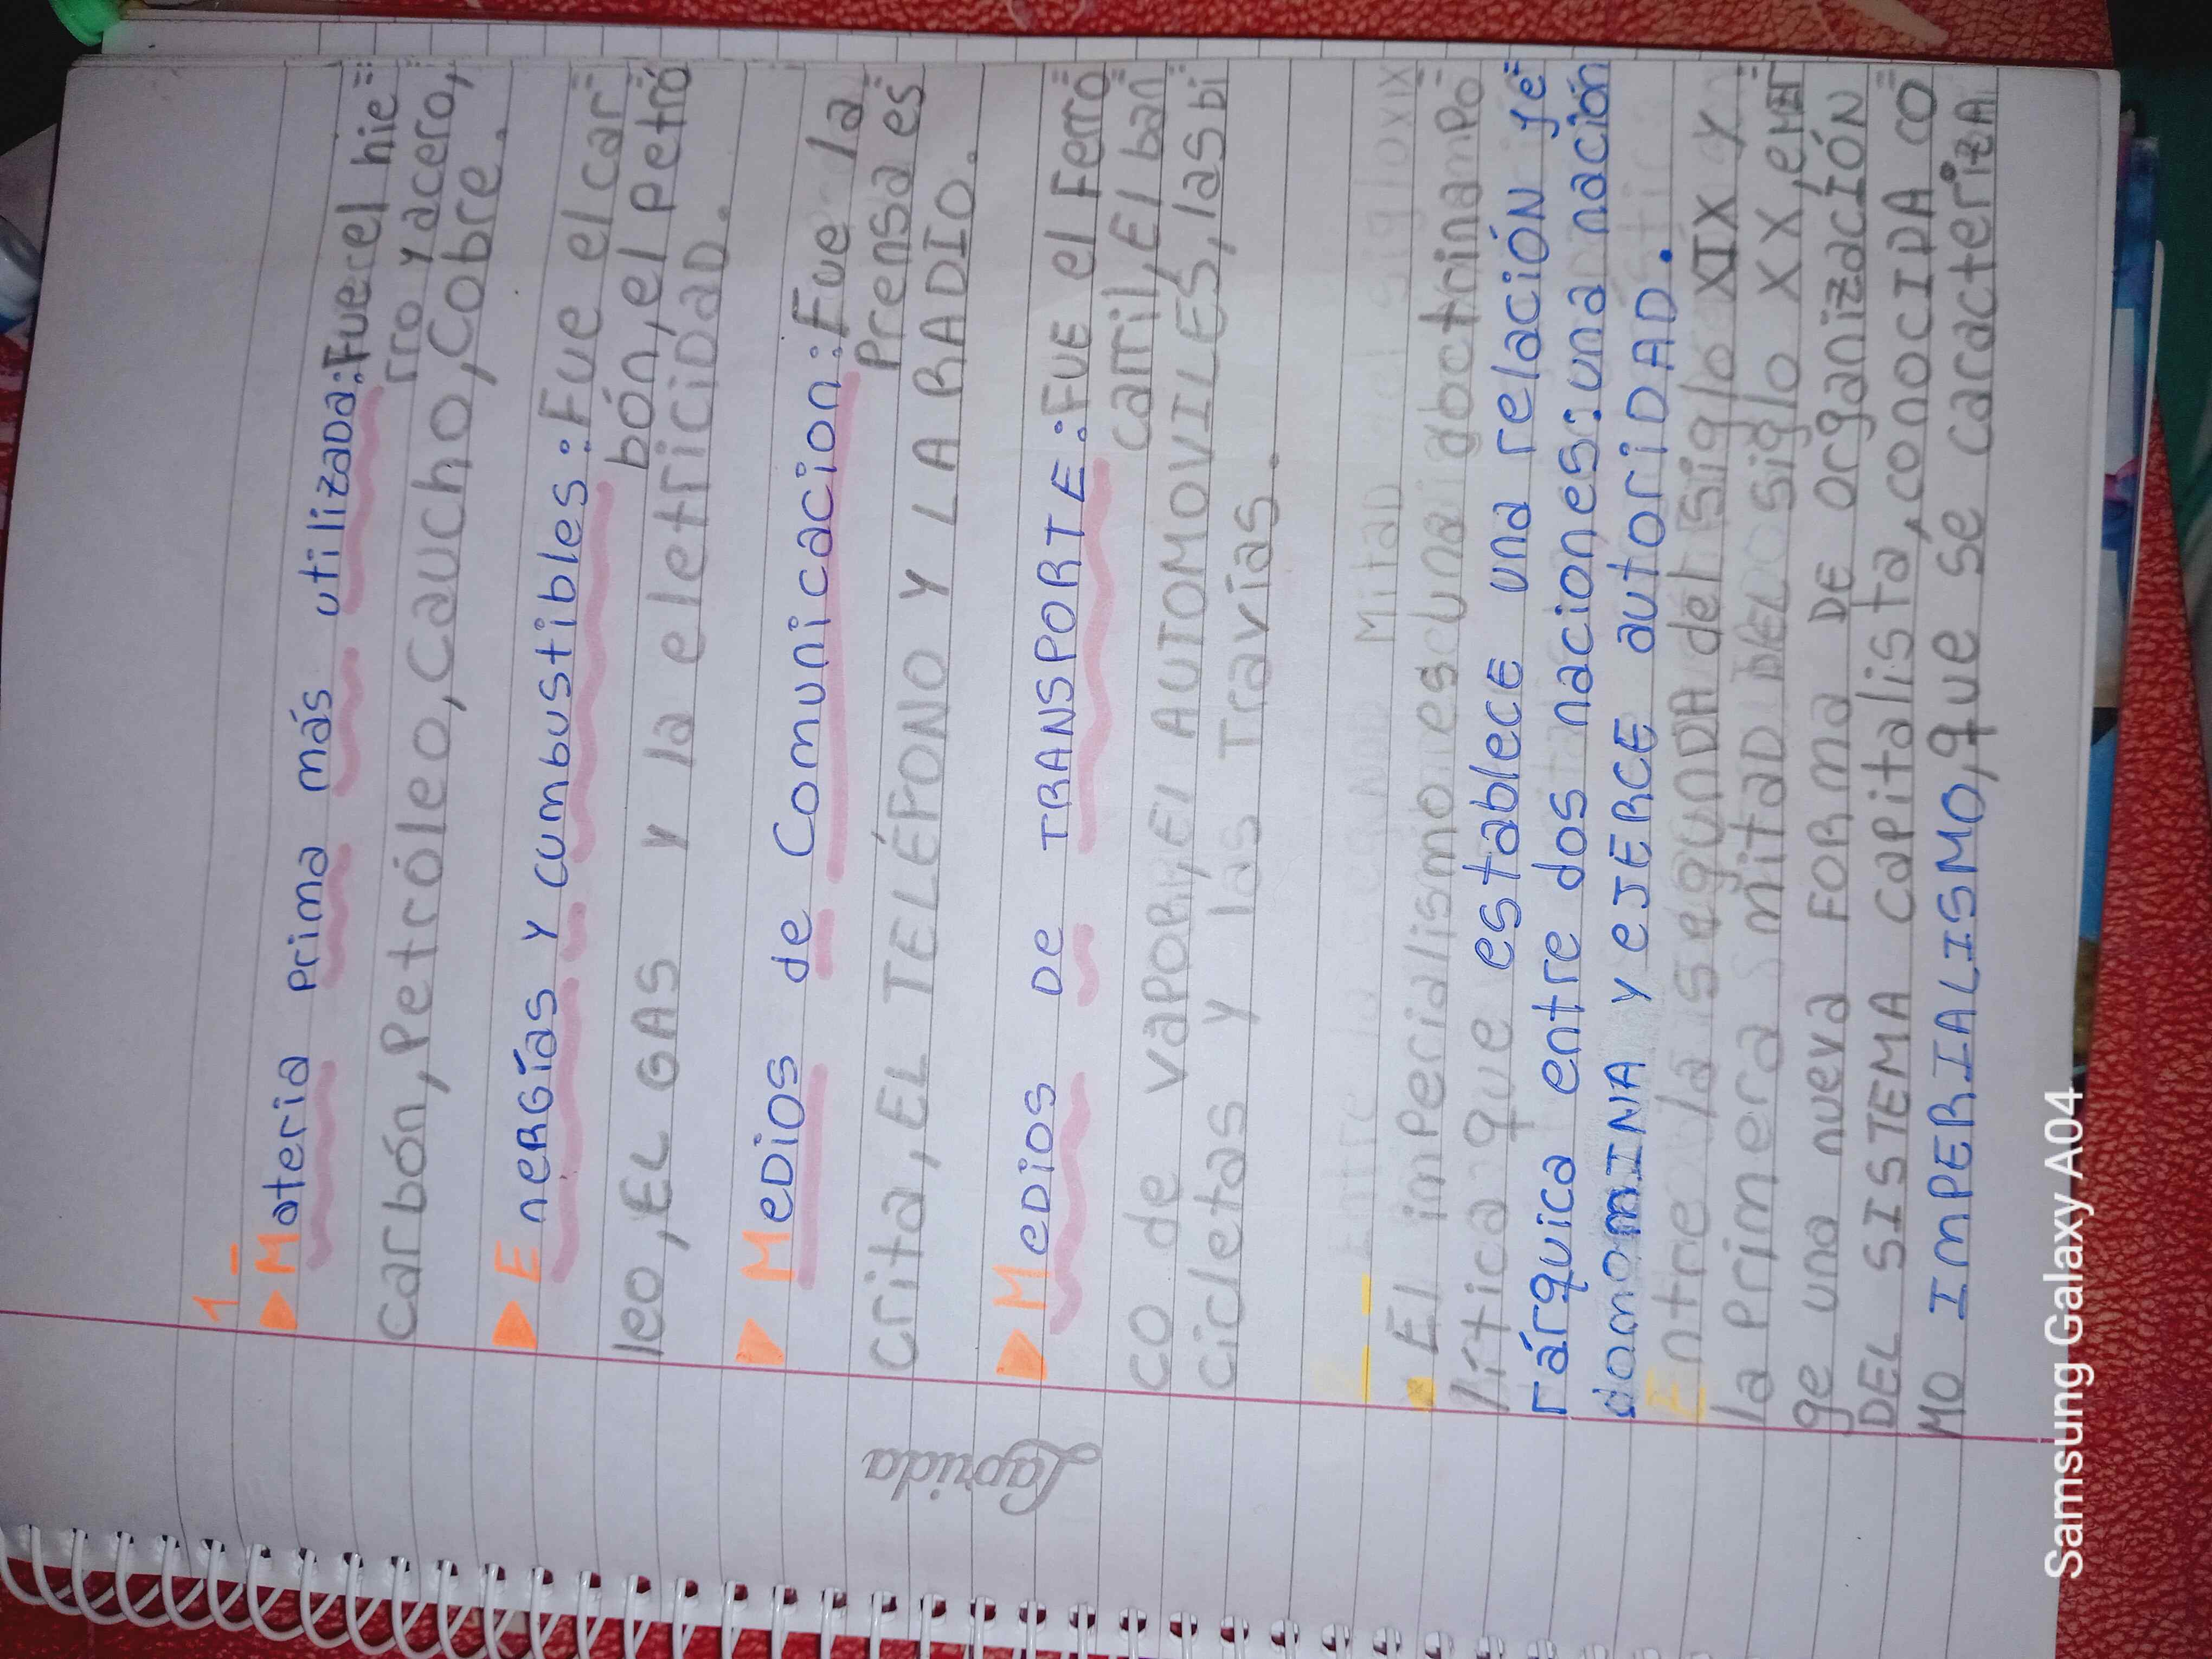 1-
Materia prima más utilizada: Fue el hie=
rro y acero,
carbón, Petróleo, Caucho, Cobre.
Energías y cumbustibles: Fue el car=
bón, el petró=
leo, EL GAS y la eletriciDaD.
MeDios de Comunicacion: Fue la
Prensa es=
crita, EL TELÉFONO Y LA RADIO.
MeDios De TRANSPORTE: FUE el Ferro=
carril, El bar=
co de vapor, El AUTOMOVILES, las bi=
cicletas y las Travías.
2-
El imperialismo es una doctrina po=
lítica que establece una relación je=
rárquica entre dos naciones: una nación
domina y eJERCE autoriDAD.
Entre la segunDA del siglo XIX y
la primera mitaD DEL siglo XX, emer=
ge una nueva Forma DE organizaCIÓN
DEL SISTEMA capitalista, conociDA co=
MO ImPERIALISMO, que se caracteriza
Laprida
Samsung Galaxy A04